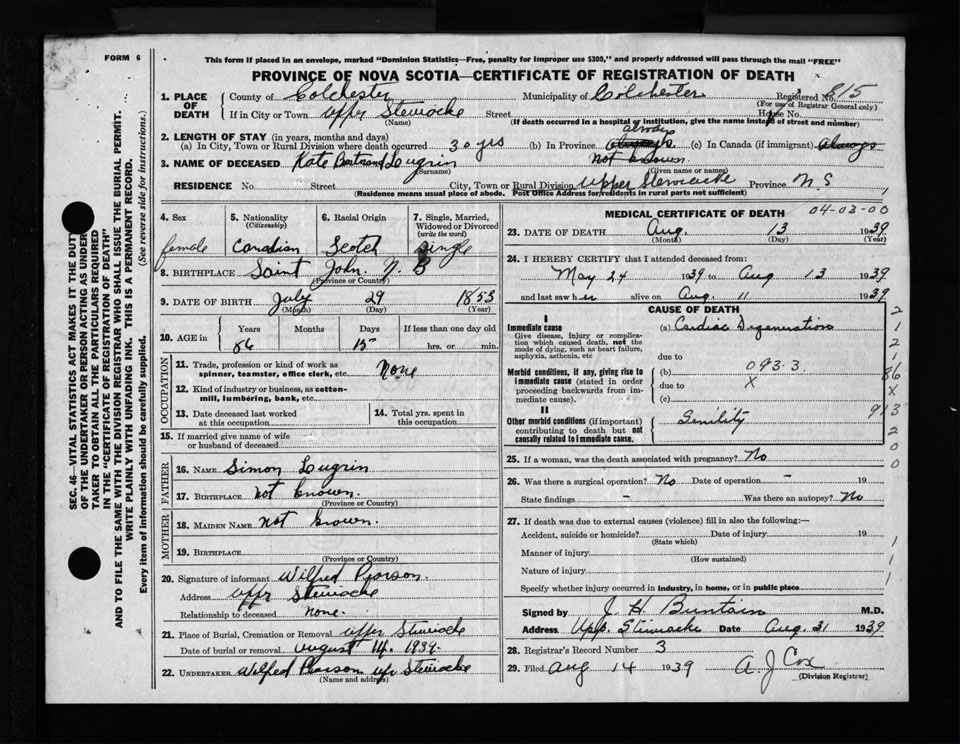 FORM 6
This form if placed in an envelope, marked "Dominion Statistics—Free, penalty for improper use $300," and properly addressed will pass through the mail "FREE"
PROVINCE OF NOVA SCOTIA—CERTIFICATE OF REGISTRATION OF DEATH
1. PLACE OF DEATH
County of Colchester Municipality of Colchester Registered No. 815
(For use of Registrar General only)
If in City or Town Uppr Stewiacke Street House No.
(Name) (If death occurred in a hospital or institution, give the name instead of street and number)
2. LENGTH OF STAY (in years, months and days)
always
(a) In City, Town or Rural Division where death occurred 30 yrs (b) In Province always (c) In Canada (if immigrant) always
3. NAME OF DECEASED Kate Bertrand Lugrin not known.
(Surname) (Given name or names)
RESIDENCE No. Street City, Town or Rural Division Upper Stewiacke Province N.S
(Residence means usual place of abode. Post Office Address for residents in rural parts not sufficient)
1
4. Sex
female
5. Nationality
(Citizenship)
Canadian
6. Racial Origin
Scotch
7. Single, Married, Widowed or Divorced
(write the word)
single
8. BIRTHPLACE Saint John. N. B
(Province or Country)
9. DATE OF BIRTH July 29 1853
(Month) (Day) (Year)
10. AGE in
Years Months Days If less than one day old
86 15 hrs. or min.
OCCUPATION
11. Trade, profession or kind of work as spinner, teamster, office clerk, etc. None
12. Kind of industry or business, as cotton-mill, lumbering, bank, etc.
13. Date deceased last worked at this occupation
14. Total yrs. spent in this occupation
15. If married give name of wife or husband of deceased
FATHER
16. NAME Simon Lugrin
17. BIRTHPLACE not known.
(Province or Country)
MOTHER
18. MAIDEN NAME not known.
19. BIRTHPLACE
(Province or Country)
20. Signature of informant Wilfred Pearson.
Address Uppr Stewiacke
Relationship to deceased none.
21. Place of Burial, Cremation or Removal Uppr Stewiacke
Date of burial or removal August 14. 1939.
22. UNDERTAKER Wilfred Pearson upr Stewiacke
(Name and address)
MEDICAL CERTIFICATE OF DEATH 04-03-00
23. DATE OF DEATH Aug. 13 1939
(Month) (Day) (Year)
24. I HEREBY CERTIFY that I attended deceased from
May 24 1939 to Aug 13 1939
and last saw her alive on Aug. 11 1939.
CAUSE OF DEATH
I
Immediate cause (a) Cardiac Degeneration
Give disease, injury or complication which caused death, not the mode of dying, such as heart failure, asphyxia, asthenia, etc
due to
Morbid conditions, if any, giving rise to immediate cause (stated in order proceeding backwards from immediate cause).
(b) 093.3.
due to X
(c)
II
Other morbid conditions (if important) contributing to death but not causally related to immediate cause.
Senility
2
1
2
16
86
X
913
2
0
0
25. If a woman, was the death associated with pregnancy? No
26. Was there a surgical operation? No Date of operation - 19
State findings - Was there an autopsy? No
27. If death was due to external causes (violence) fill in also the following:—
Accident, suicide or homicide? Date of injury 19
(State which)
Manner of injury
(How sustained)
Nature of injury
Specify whether injury occurred in industry, in home, or in public place
1
1
1
Signed by J. H. Buntain M.D.
Address Upp. Stewiacke Date Aug. 31 1939
28. Registrar's Record Number 3
29. Filed Aug 14 1939 A. J Cox
(Division Registrar)
SEC. 46—VITAL STATISTICS ACT MAKES IT THE DUTY
OF THE UNDERTAKER OR PERSON ACTING AS UNDER
TAKER TO OBTAIN ALL THE PARTICULARS REQUIRED
IN THE "CERTIFICATE OF REGISTRATION OF DEATH"
AND TO FILE THE SAME WITH THE DIVISION REGISTRAR WHO SHALL ISSUE THE BURIAL PERMIT.
WRITE PLAINLY WITH UNFADING INK. THIS IS A PERMANENT RECORD.
Every item of information should be carefully supplied. (See reverse side for instructions.)